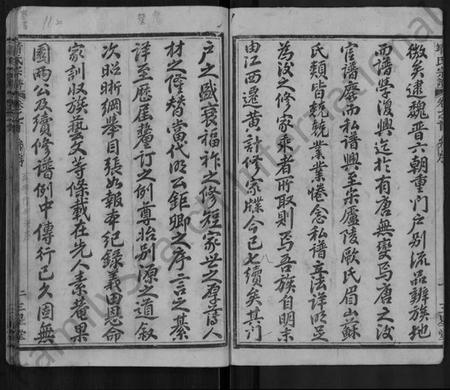 微矣逮魏晉六朝重門戶別流品辨族地
而譜學復興迄於有唐無變焉唐之後
官譜廢而私譜興至宋廬陵歐氏眉山蘇
氏類皆兢兢業業惓念私譜立法詳明足
為後之修家乘者所取則焉吾族自明末
由江西遷黃計修家牒今已七續矣其門
戶之盛衰福祚之修短家世之厚 人
材之隆替當代明公鉅卿之序言之綦
詳至歷屆釐訂之例尊始別源之道敘
次昭晰綱舉目張如報本紀錄義田恩命
家訓收族藝文等條載在先人素菴果
園兩公及續修譜例中傳行已久固無